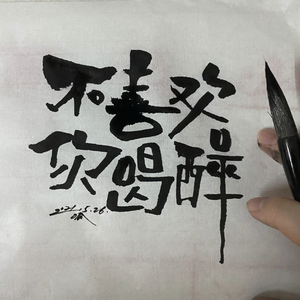 不喜欢
你喝醉
2021.5.26.